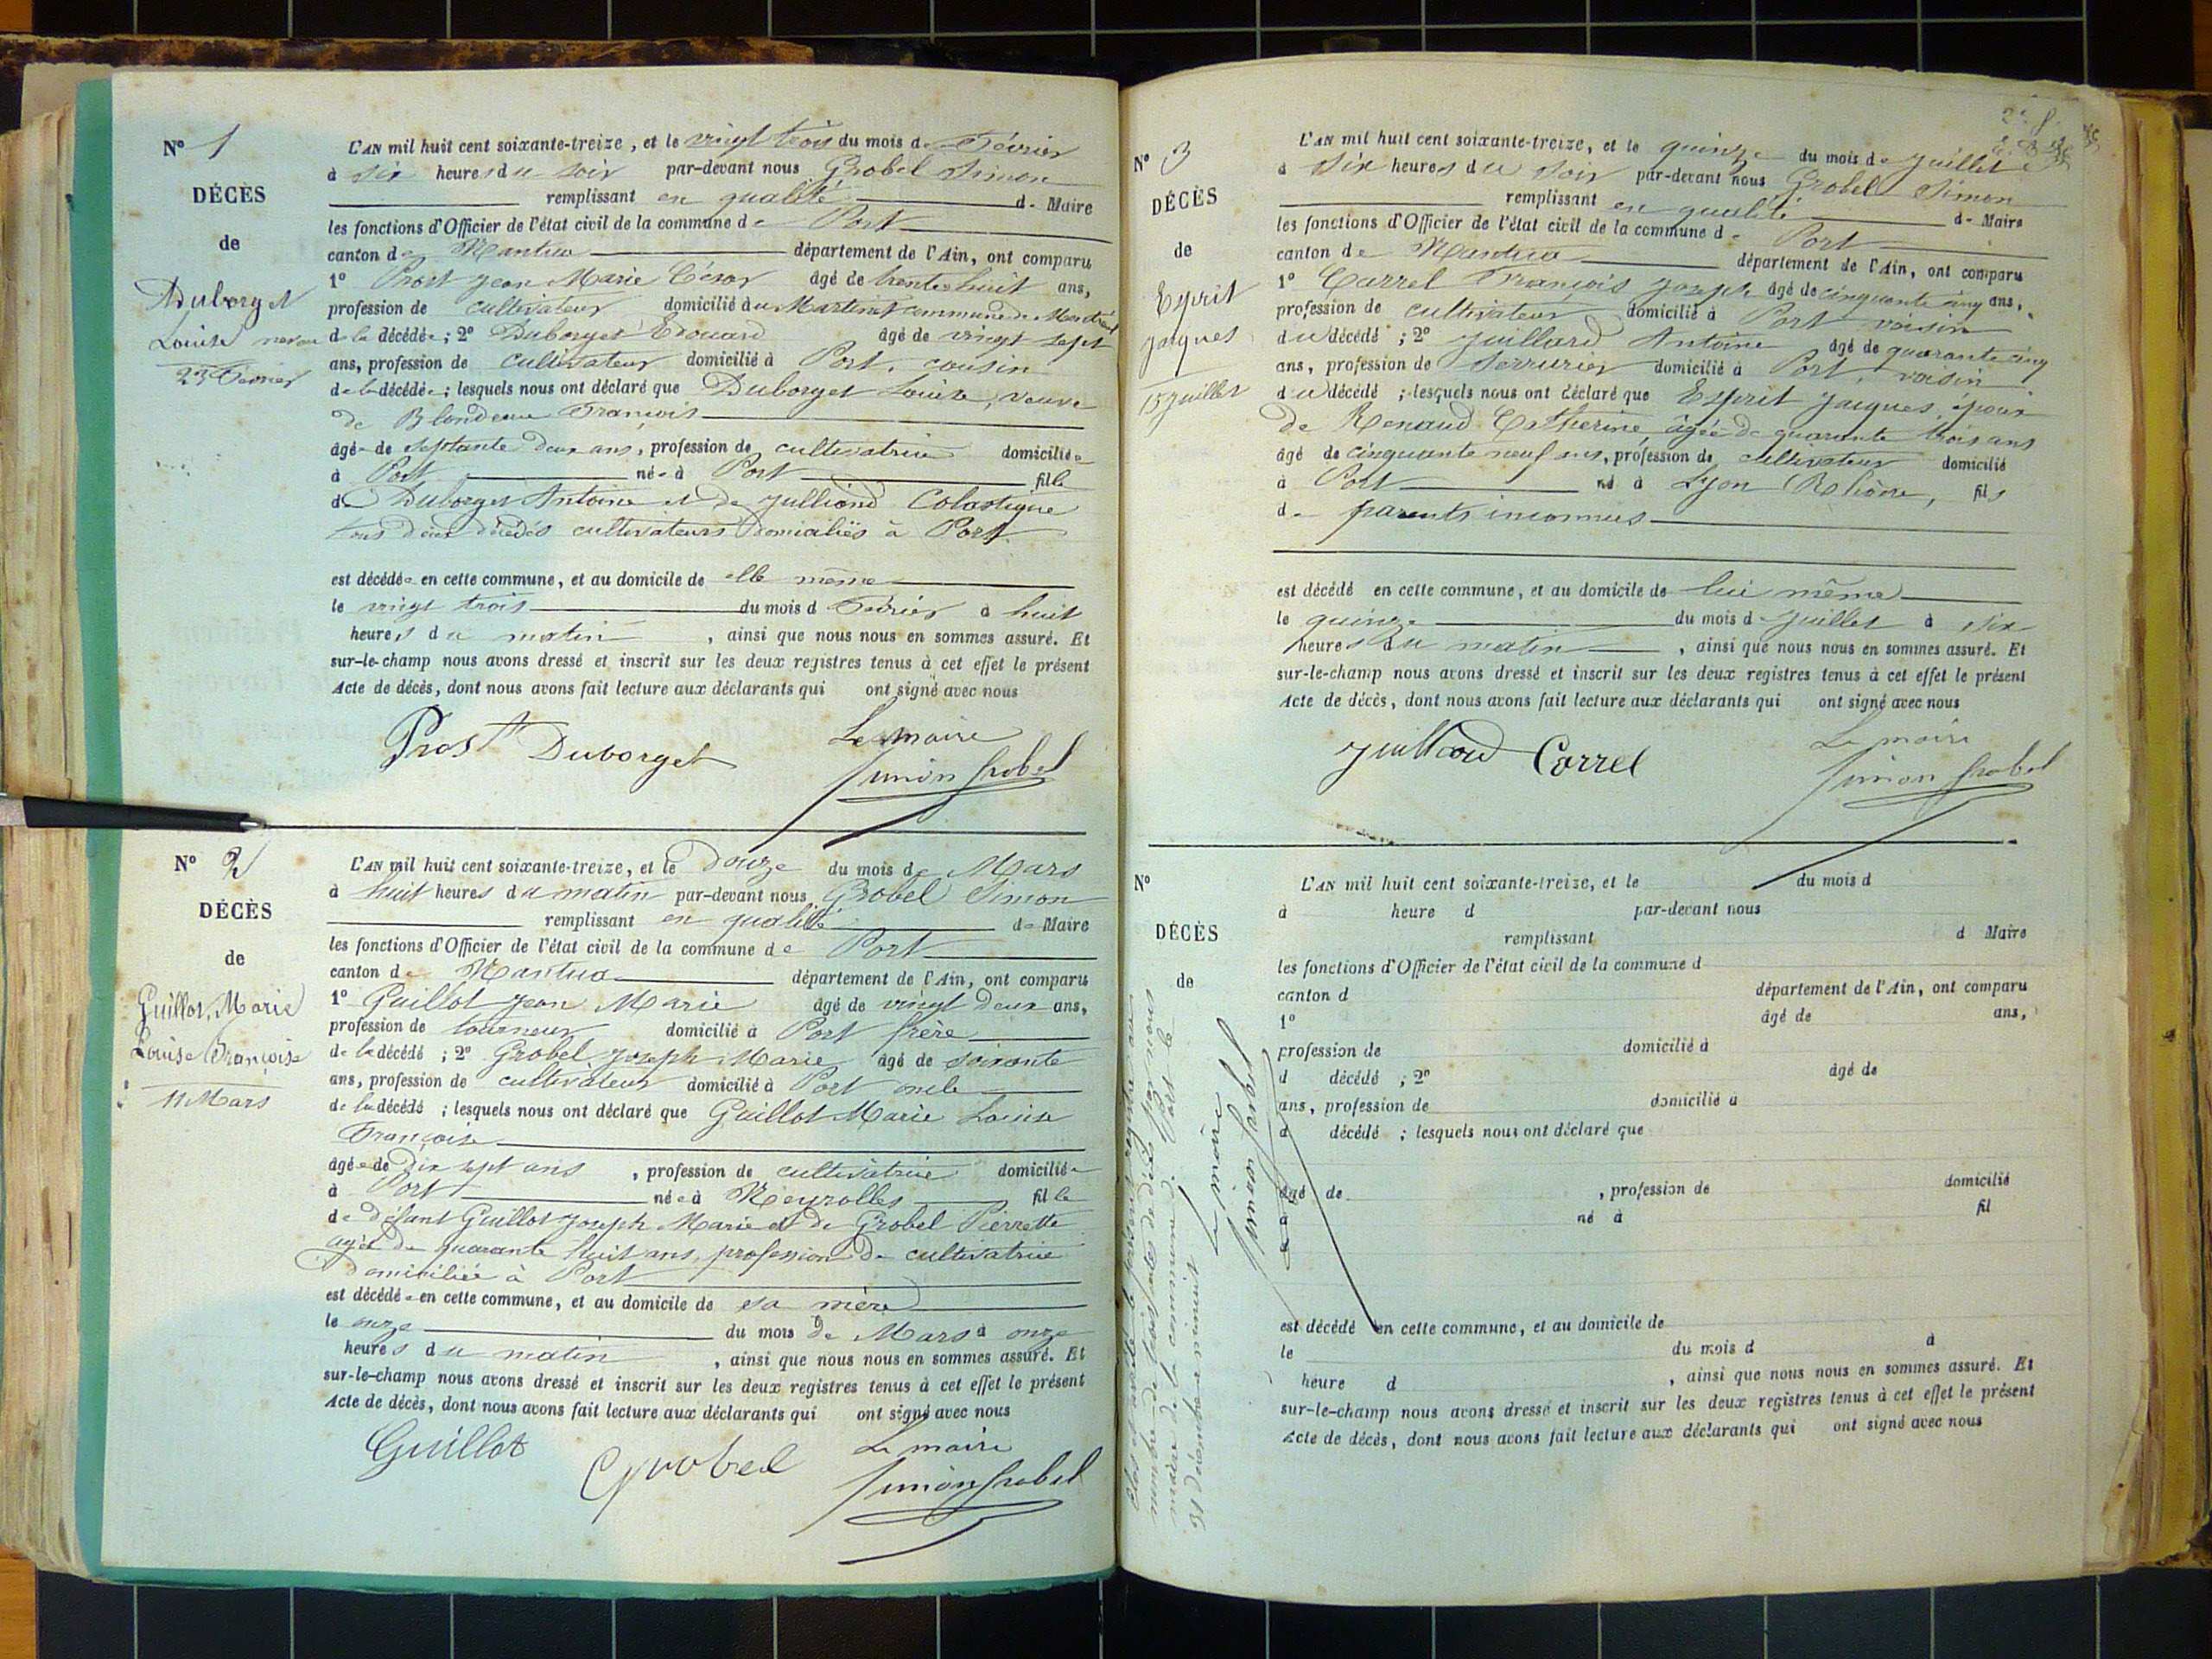 N° 1
DÉCÈS
de
Duborget
Louise
23 Février
L'AN mil huit cent soixante-treize, et le vingt trois du mois de Février
à six heures du soir par-devant nous Grobel Simon
remplissant en qualité de Maire
les fonctions d'Officier de l'état civil de la commune de Port
canton de Nantua département de l'Ain, ont comparu
1° Prost Jean Marie César âgé de trente huit ans,
profession de cultivateur domicilié au Martinet commune de Montréal
neveu de la décédée; 2° Duborget Edouard âgé de vingt sept
ans, profession de cultivateur domicilié à Port, cousin
de la décédée; lesquels nous ont déclaré que Duborget Louise, veuve
de Blondeau François
âgée de septante deux ans, profession de cultivatrice domiciliée
à Port née à Port fille
de Duborget Antoine et de Julliand Colastique
tous deux décédés cultivateurs domiciliés à Port
est décédée en cette commune, et au domicile de elle même
le vingt trois du mois d Février à huit
heures du matin, ainsi que nous nous en sommes assuré. Et
sur-le-champ nous avons dressé et inscrit sur les deux registres tenus à cet effet le présent
Acte de décès, dont nous avons fait lecture aux déclarants qui ont signé avec nous
Prost Duborget Le maire
Simon Grobel
N° 2
DÉCÈS
de
Guillot, Marie
Louise Françoise
11 Mars
L'AN mil huit cent soixante-treize, et le douze du mois de Mars
à huit heures du matin par-devant nous Grobel Simon
remplissant en qualité de Maire
les fonctions d'Officier de l'état civil de la commune de Port
canton de Nantua département de l'Ain, ont comparu
1° Guillot Jean Marie âgé de vingt deux ans,
profession de tourneur domicilié à Port frère
de la décédé; 2° Grobel Joseph Marie âgé de soixante
ans, profession de cultivateur domicilié à Port oncle
de la décédé; lesquels nous ont déclaré que Guillot Marie Louise
Françoise
âgée de dix sept ans, profession de cultivatrice domiciliée
à Port née à Neyrolles fille
de défunt Guillot Joseph Marie et de Grobel Pierrette
agée de quarante huit ans, profession de cultivatrice
domiciliée à Port
est décédée en cette commune, et au domicile de sa mère
le onze du mois de Mars à onze
heures du matin, ainsi que nous nous en sommes assuré. Et
sur-le-champ nous avons dressé et inscrit sur les deux registres tenus à cet effet le présent
Acte de décès, dont nous avons fait lecture aux déclarants qui ont signé avec nous
Guillot Grobel Le maire
Simon Grobel
N° 3
DÉCÈS
de
Esprit
Jacques
15 Juillet
L'AN mil huit cent soixante-treize, et le quinze du mois de Juillet
à six heures du soir par-devant nous Grobel Simon
remplissant en qualité de Maire
les fonctions d'Officier de l'état civil de la commune de Port
canton de Nantua département de l'Ain, ont comparu
1° Carrel François Joseph âgé de cinquante cinq ans,
profession de cultivateur domicilié à Port voisin
du décédé; 2° Juillard Antoine âgé de quarante cinq
ans, profession de serrurier domicilié à Port, voisin
du décédé; lesquels nous ont déclaré que Esprit Jacques, époux
de Renaud Catherine âgée de quarante trois ans
âgé de cinquante neuf ans, profession de cultivateur domicilié
à Port né à Lyon (Rhône, fils
de parents inconnus
est décédé en cette commune, et au domicile de lui même
le quinze du mois de Juillet à six
heures du matin, ainsi que nous nous en sommes assuré. Et
sur-le-champ nous avons dressé et inscrit sur les deux registres tenus à cet effet le présent
Acte de décès, dont nous avons fait lecture aux déclarants qui ont signé avec nous
Juillard Carrel Le maire
Simon Grobel
N°
DÉCÈS
de
L'AN mil huit cent soixante-treize, et le du mois d
à heure d par-devant nous
remplissant d Maire
les fonctions d'Officier de l'état civil de la commune d
canton d département de l'Ain, ont comparu
1° âgé de ans,
profession de domicilié à
d décédé; 2° âgé de
ans, profession de domicilié à
d décédé; lesquels nous ont déclaré que
âgé de, profession de domicilié
à né à fil
d
est décédé en cette commune, et au domicile de
le du mois d à
heure d, ainsi que nous nous en sommes assuré. Et
sur-le-champ nous avons dressé et inscrit sur les deux registres tenus à cet effet le présent
Acte de décès, dont nous avons fait lecture aux déclarants qui ont signé avec nous
Clos et arrêté le présent registre au
nombre de trois actes de décès par nous
maire de la commune de Port le
31 Décembre à minuit
Le maire
Simon Grobel